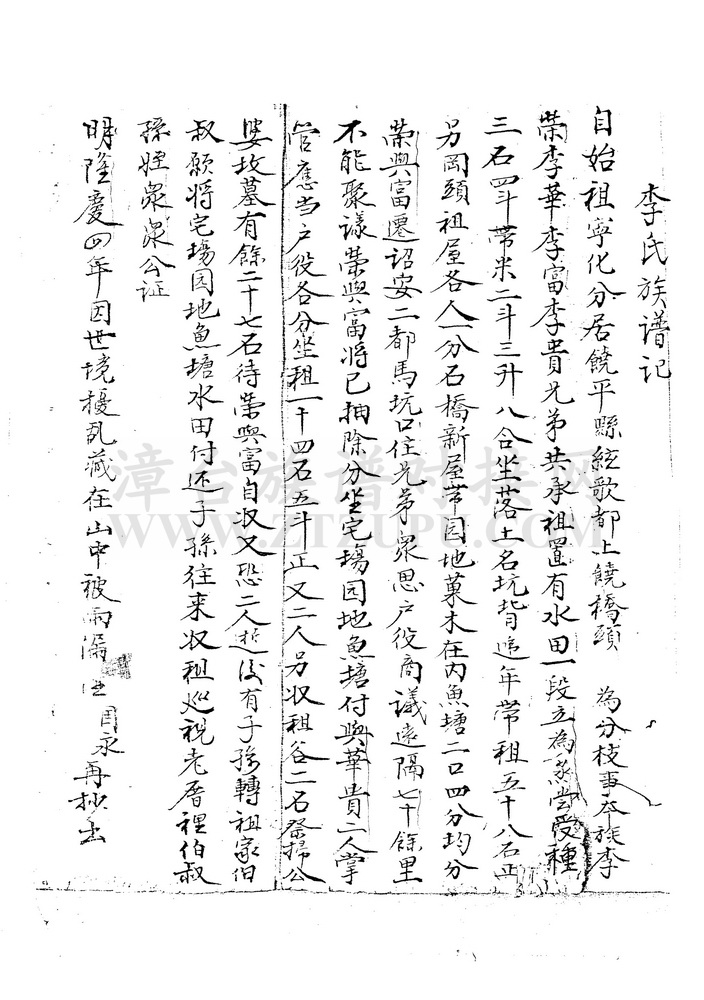 李氏族谱记
自始祖寧化分居饒平縣絃歌都上饒橋頭 為分枝事本族李
榮李華李富李貴兄弟共承祖置有水田一段立為家尝受種
三石四斗带米二斗三升八合坐落土名坑背遞年带租五十八石正
另岡頭祖屋各人一分石橋新屋带园地菓木在内魚塘二口四分均分
荣與富遷诏安二都馬坑口住兄弟眾思户役商議遠隔七十餘里
不能聚議荣與富將已抽除分坐宅場园地魚塘付與華貴二人掌
管應当户役各分坐租一十四石五斗正又二人另收租谷二石祭掃公
婆坟墓有餘二十七石待荣與富自收又恐二人逝後有子孫轉祖家伯
叔願将宅場园地魚塘水田付还子孫往来收租巡視老厝裡伯叔
孫姪眾眾公证
明隆慶四年因世境擾乱藏在山中被雨漏 目永再抄出
漳台族谱对接网
WWW.ZTZUPU.COM